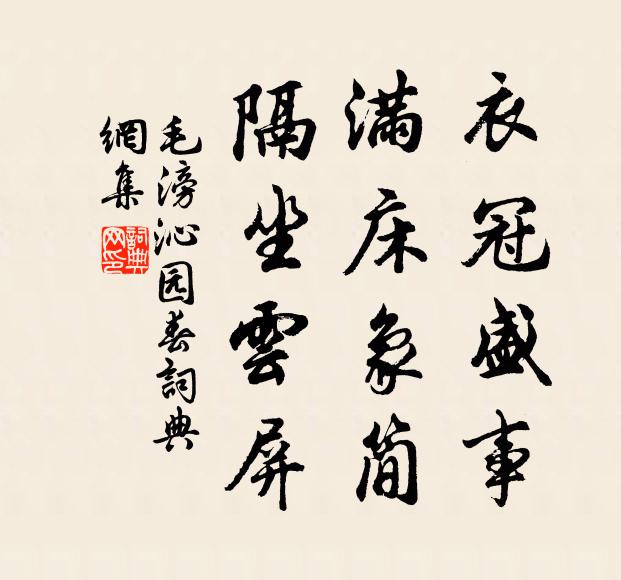 衣冠盛事
满床象简
隔坐雲屏
毛滂沁园春詞典
網集
詞典
网印